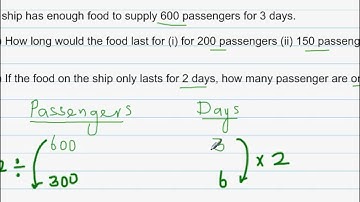 ship has enough food to supply 600 passengers for 3 days.
) How long would the food last for (i) for 200 passengers (ii) 150 passeng
) If the food on the ship only lasts for 2 days, how many passenger are o
Passengers Days
600 3
2 ÷ × 2
300 6